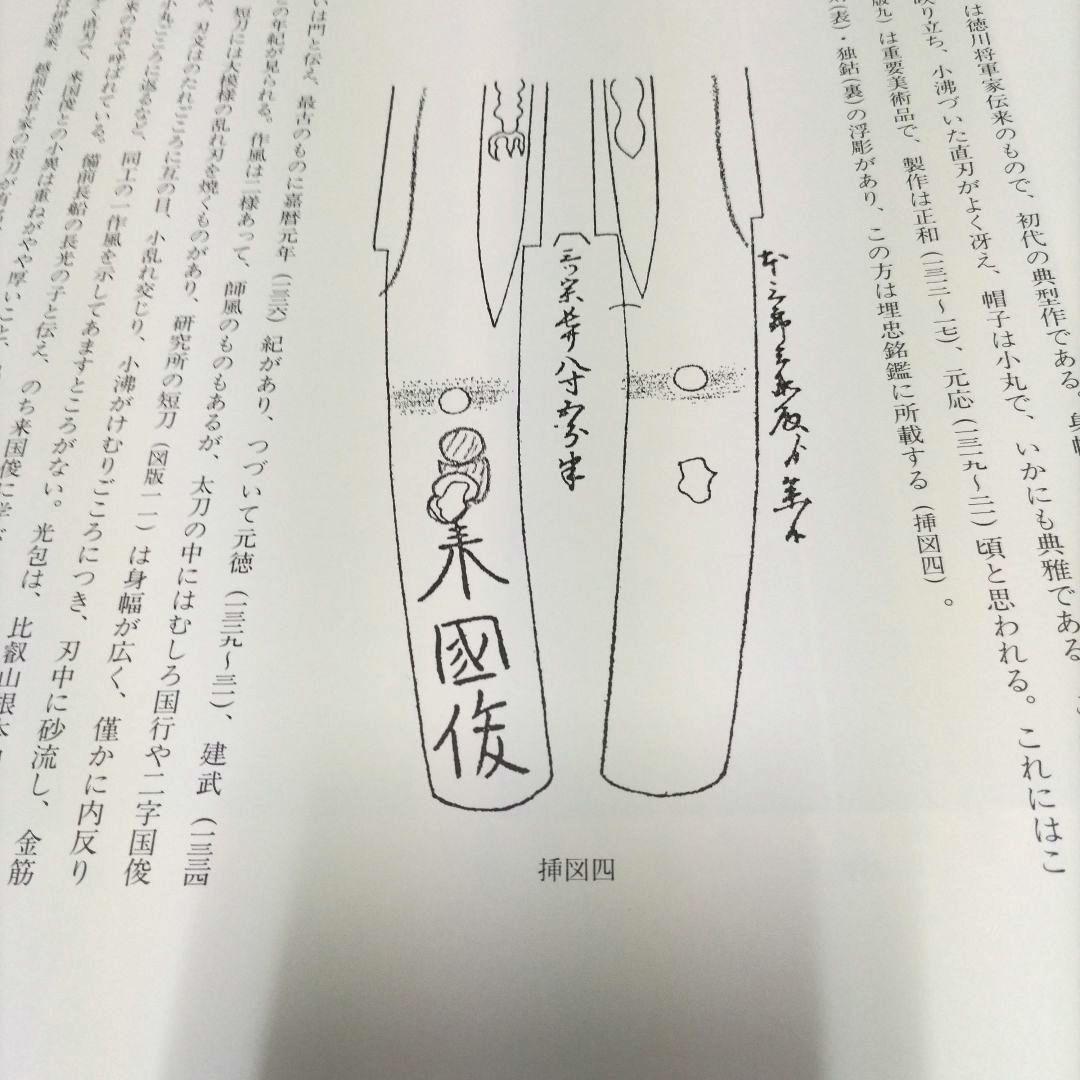 は徳川将軍家伝来のもので、初代の典型作である。
り立ち、小沸づいた直刃がよく冴え、帽子は小丸で、いかにも典雅である
版九）は重要美術品で、製作は正和（一三一二～一七）、元応（一三一九～二一）頃と思われる。これにはこ
（表）・独鈷（裏）の浮彫があり、この方は埋忠銘鑑に所載する（挿図四）。
八寸
來國俊
挿図四
いは門と伝え、最古のものに嘉暦元年（一三二六）紀があり、つづいて元徳（一三二九～三一）、建武（一三三四
の年紀が見られる。作風は二様あって、師風のものもあるが、太刀の中にはむしろ国行や二字国俊
短刀には大模様の乱れ刃を焼くものがあり、研究所の短刀（図版一一）は身幅が広く、僅かに内反り
、刃文はのたれごころに互の目、小乱れ交じり、小沸がけむりごころにつき、刃中に砂流し、金筋
小丸ごころに返るなど、同工の一作風を示してあますところがない。光包は、比叡山根本
来の名で呼ばれている。備前長船の長光の子と伝え、のち来国俊に学
く直刃で、来国俊との小異は重ねがやや厚いこと、
越前松平家の短刀が有